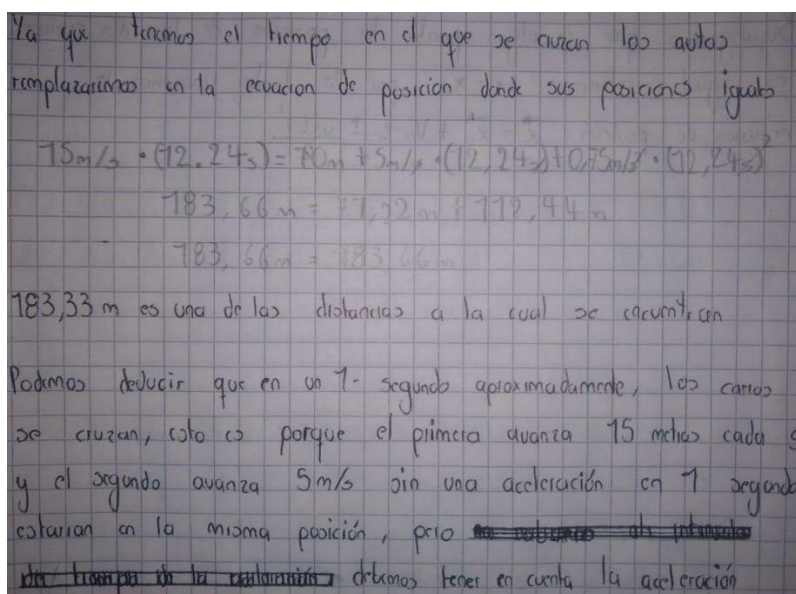 Ya que tenemos el tiempo en el que se cruzan los autos
remplazariamos en la ecuacion de posicion donde sus posiciones iguals
15m/s · (12.24s) = 10m + 5m/s · (12,24s) + 0,75m/s² · (12,24s)²
183,66m = 71,22m + 112,44m
183,66m = 183,66m
183,33 m es una de las distancias a la cual se encuentran
Podemos deducir que en un 1- segundo aproximadamente, los carros
se cruzan, esto es porque el primero avanza 15 metros cada
y el segundo avanza 5m/s sin una acceleración en 1 segundo
estarian en la misma posición, pero
debemos tener en cuenta la aceleración